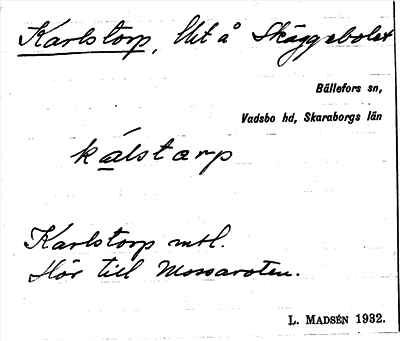 Karlstorp, Ut å Skäggebolet
Bällefors sn,
Vadsbo hd, Skaraborgs län
kálstarp
Karlstorp mtl.
Hör till Mossaroten.
L. MADSÉN 1932.